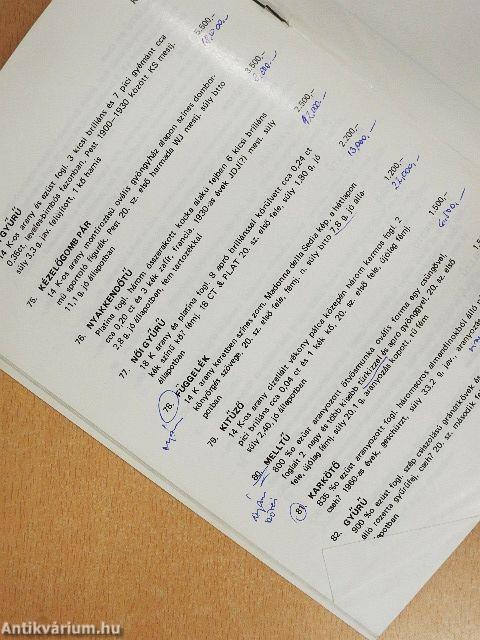 GYŰRŰ
14 K-os arany és ezüst fogl. 3 kicsi briliáns és 7 pici gyémánt cca
0,35ct, levelesbimbót fazonban, Pest 1900–1930 között KS mesj.
súly 3,3 g, jav. felújított, 1 kő hamis
5.500,–
75. KÉZELŐGOMB PÁR
14 K-os arany montírozású ovális gyöngyház alapon színes dombor-
mű sportoló figurák, Pest 20. sz. első harmada WJ mesj. súly brtto
11,1 g, jó állapotban
3.500,–
76. NYAKKENDŐTŰ
Platina fogl. három összerakott kocka alakú fejben 6 kicsi briliáns
cca 0,20 ct és 3 kék zafir, francia, 1930-as évek JDJ(?) mest. súly
2,8 g, jó állapotban, fém tartozékkal
2.500,–
12.000,–
77. NŐI GYŰRŰ
18 K arany és platina fogl. 8 apró briliánssal körülvett cca 0,24 ct
kék színű kő? fémj. 18 CT. & PLAT 20. sz. első fele, súly 1,90 g, jó
állapotban
2.200,–
13.000,–
78. FÜGGELÉK
14 K arany keretben színes zom. Madonna della Sedia kép, a hátlapon
könyörgés szövege, 20. sz. első fele, fémj. n. súly brtto 7,8 g, jó álla-
potban
1.200,–
22.000,–
79. KITŰZŐ
14 K-os arany cizellált vékony pálca közepén három karmos fogl. 2
pici briliáns cca 0,04 ct és 1 kék kő, 20. sz. első fele, újólag fémj.
súly 2,40, jó állapotban
1.500,–
80. MELLTŰ
800 ‰ ezüst aranyozott ötvösmunka ovális forma egy cabujonel,
foglalt 2 nagy és több kisebb türkizzel és apró gyönggyel, 20. sz. első
fele, újólag fémj. súly 20,1 g, aranyozás kopott, tű fém
81. KARKÖTŐ
835 ‰ ezüst aranyozott fogl. háromsoros almandinokból álló
cseh? 1960-as évek, geschürzt, súly 33,2 g, jav., aranyozás
82. GYŰRŰ
900 ‰ ezüst fogl. szép csiszolású gránátkövek és
álló rozetta gyűrűfej, cseh? 20. sz. második fele
állapotban
Antikvárium.hu